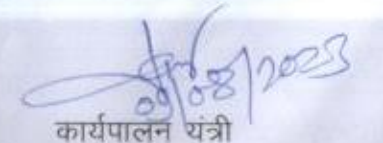 09/08/2023
कार्यपालन यंत्री